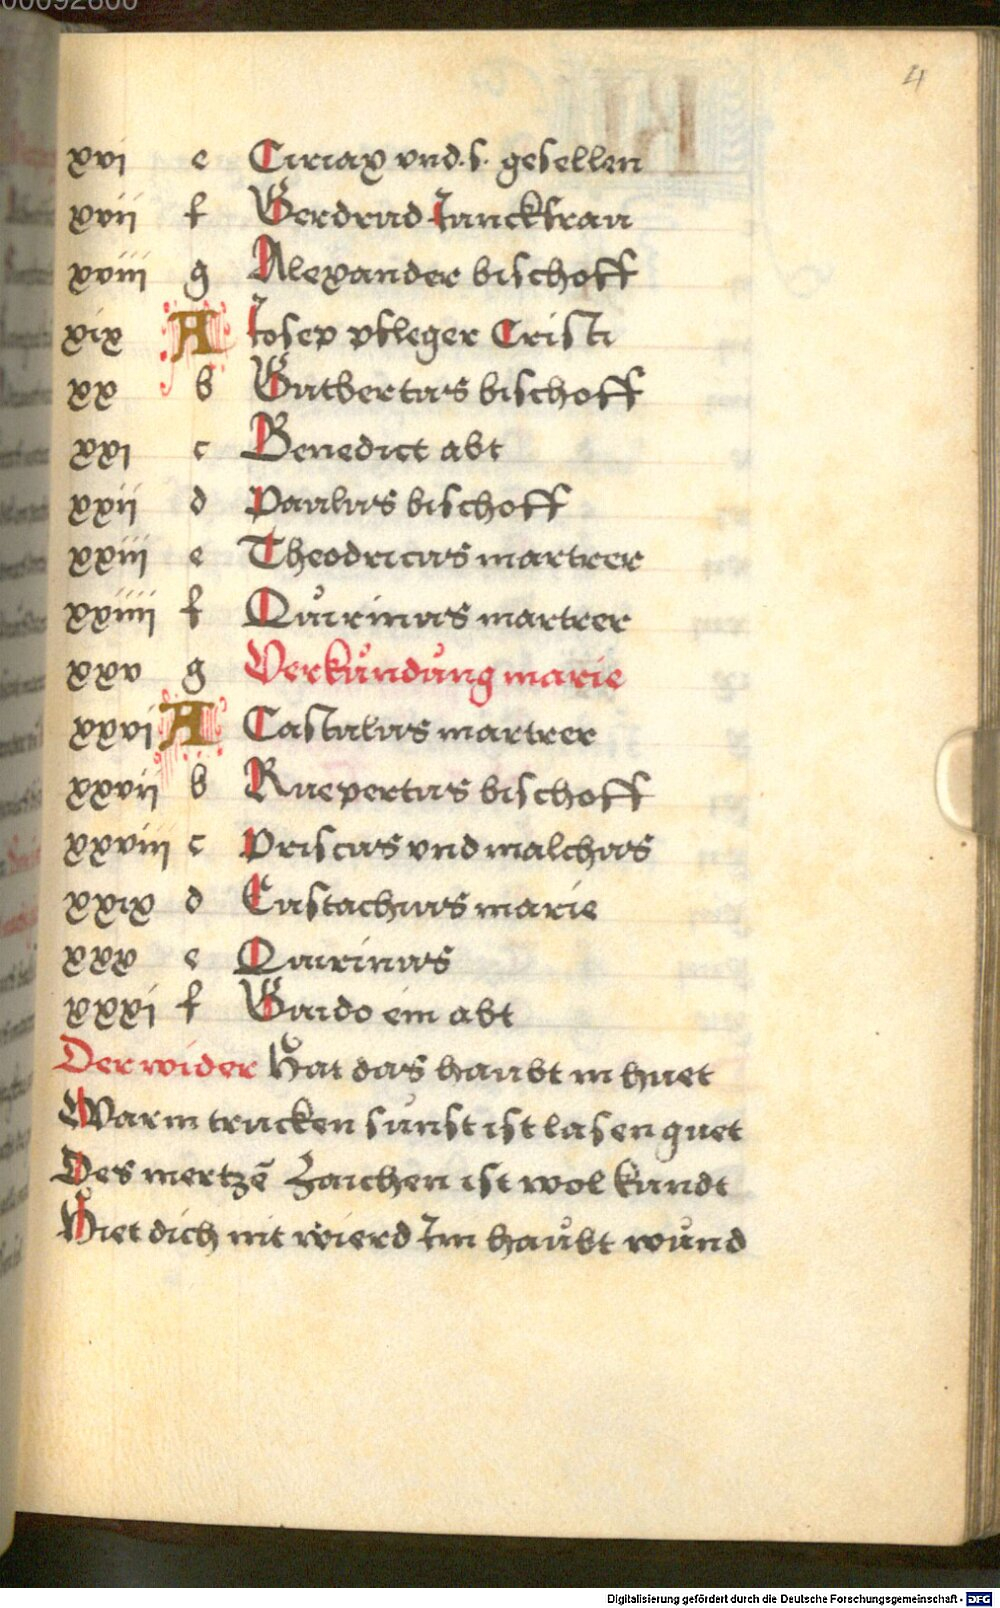 00092600
4
xvi e Ciriax vnd .s. gesellen
xvii f Gerdrud Junckfrau
xviii g Alexander bischoff
xix A Josep pfleger Cristi
xx b Gutbertus bischoff
xxi c Benedict abt
xxii d Paulus bischoff
xxiii e Theodricus martrer
xxiiii f Quirinus martrer
xxv g Verkündung marie
xxvi A Castulus martrer
xxvii b Ruepertus bischoff
xxviii c Priscus vnd malchus
xxix d Eustachius marie
xxx e Quirinus
xxxi f Guido ein abt
Der wider Hat das haubt in huet
Warm trucken sunst ist lasen guet
Des mertzē Zaichen ist wol kundt
Hiet dich nit wierd Im haubt wund
Digitalisierung gefördert durch die Deutsche Forschungsgemeinschaft - DFG